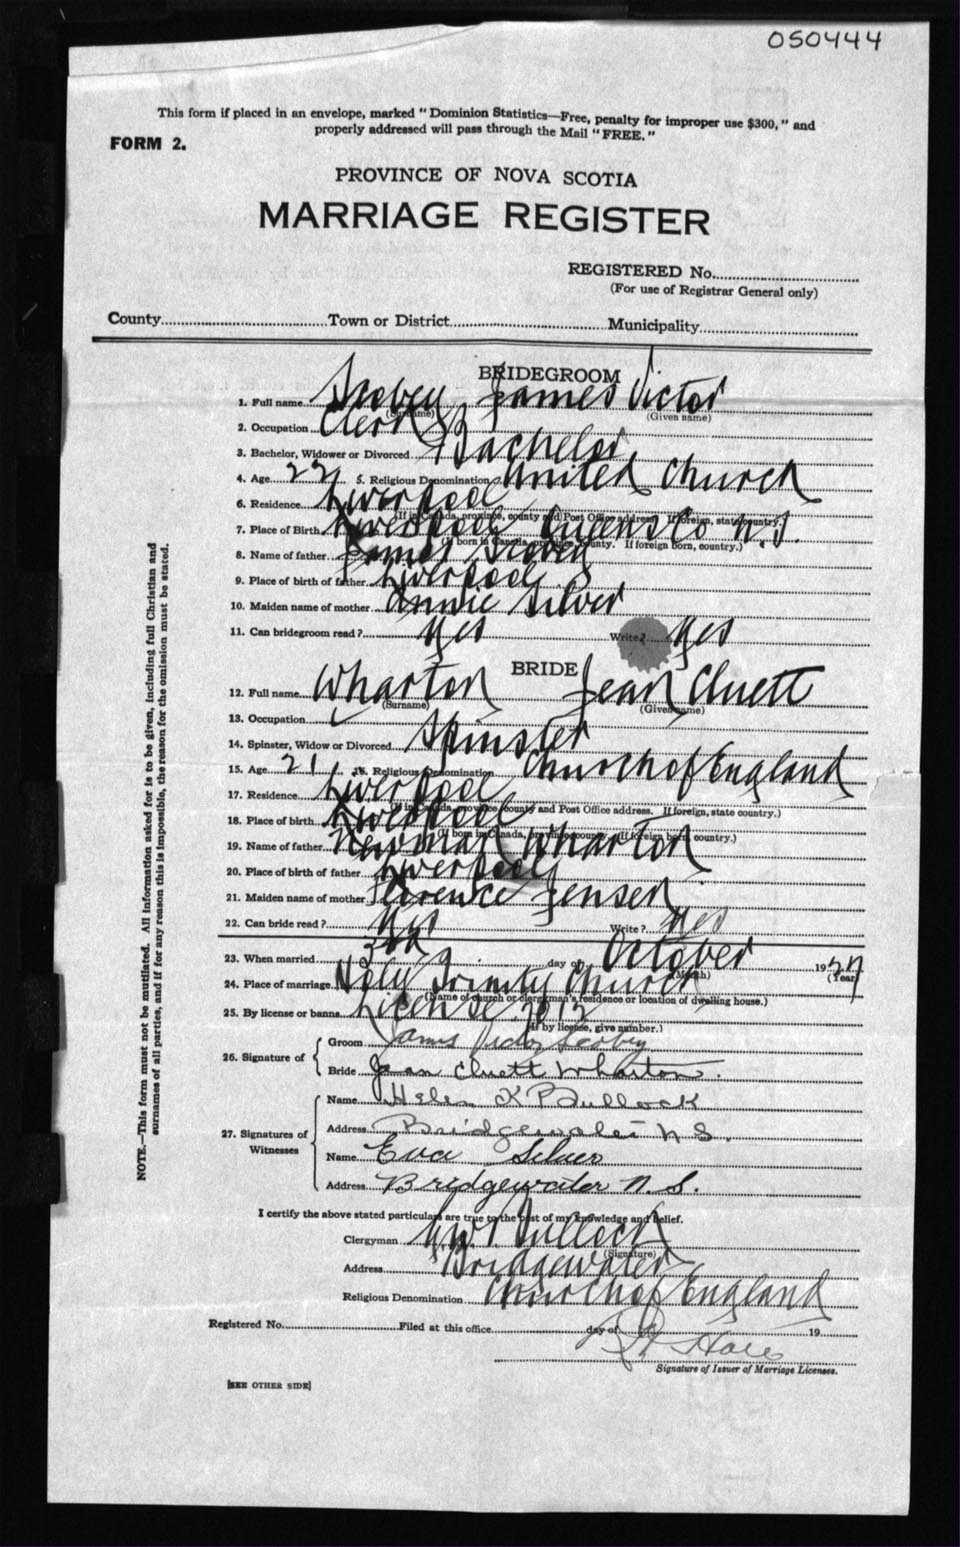 050444
This form if placed in an envelope, marked "Dominion Statistics—Free, penalty for improper use $300," and
properly addressed will pass through the Mail "FREE."
FORM 2.
PROVINCE OF NOVA SCOTIA
MARRIAGE REGISTER
REGISTERED No.
(For use of Registrar General only)
County Town or District Municipality
BRIDEGROOM
1. Full name James Victor
(Surname) (Given name)
2. Occupation Clerk
3. Bachelor, Widower or Divorced Bachelor
4. Age 22 5. Religious Denomination United Church
6. Residence Liverpool
(If in Canada, province, county and Post Office address. If foreign, state country.)
7. Place of Birth Liverpool Queens Co N.S.
(If born in Canada, province, county. If foreign born, country.)
8. Name of father James
9. Place of birth of father Liverpool
10. Maiden name of mother Annie Silver
11. Can bridegroom read? Yes Write? Yes
BRIDE
12. Full name Wharton Jean Cluett
(Surname) (Given name)
13. Occupation
14. Spinster, Widow or Divorced Spinster
15. Age 21 16. Religious Denomination Church of England
17. Residence Liverpool
(If in Canada, province, county and Post Office address. If foreign, state country.)
18. Place of birth Liverpool
(If born in Canada, province, county. If foreign born, country.)
19. Name of father Newman Wharton
20. Place of birth of father Liverpool
21. Maiden name of mother Florence Jensen
22. Can bride read? Yes Write? Yes
23. When married day of October 1927
(Month) (Year)
24. Place of marriage Holy Trinity Church
(Name of church or clergyman's residence or location of dwelling house.)
25. By license or banns License 2012
(If by license, give number.)
26. Signature of Groom James Victor
Bride Jean Cluett Wharton.
27. Signatures of Witnesses Name Helen K Bullock
Address Bridgewater N S.
Name Eva Silver
Address Bridgewater N.S.
I certify the above stated particulars are true to the best of my knowledge and belief.
Clergyman Bullock
(Signature)
Address Bridgewater
Religious Denomination Church of England
Registered No. Filed at this office day of 19
Signature of Issuer of Marriage Licenses.
[SEE OTHER SIDE]
NOTE.—This form must not be mutilated. All information asked for is to be given, including full Christian and
surnames of all parties, and if for any reason this is impossible, the reason for the omission must be stated.